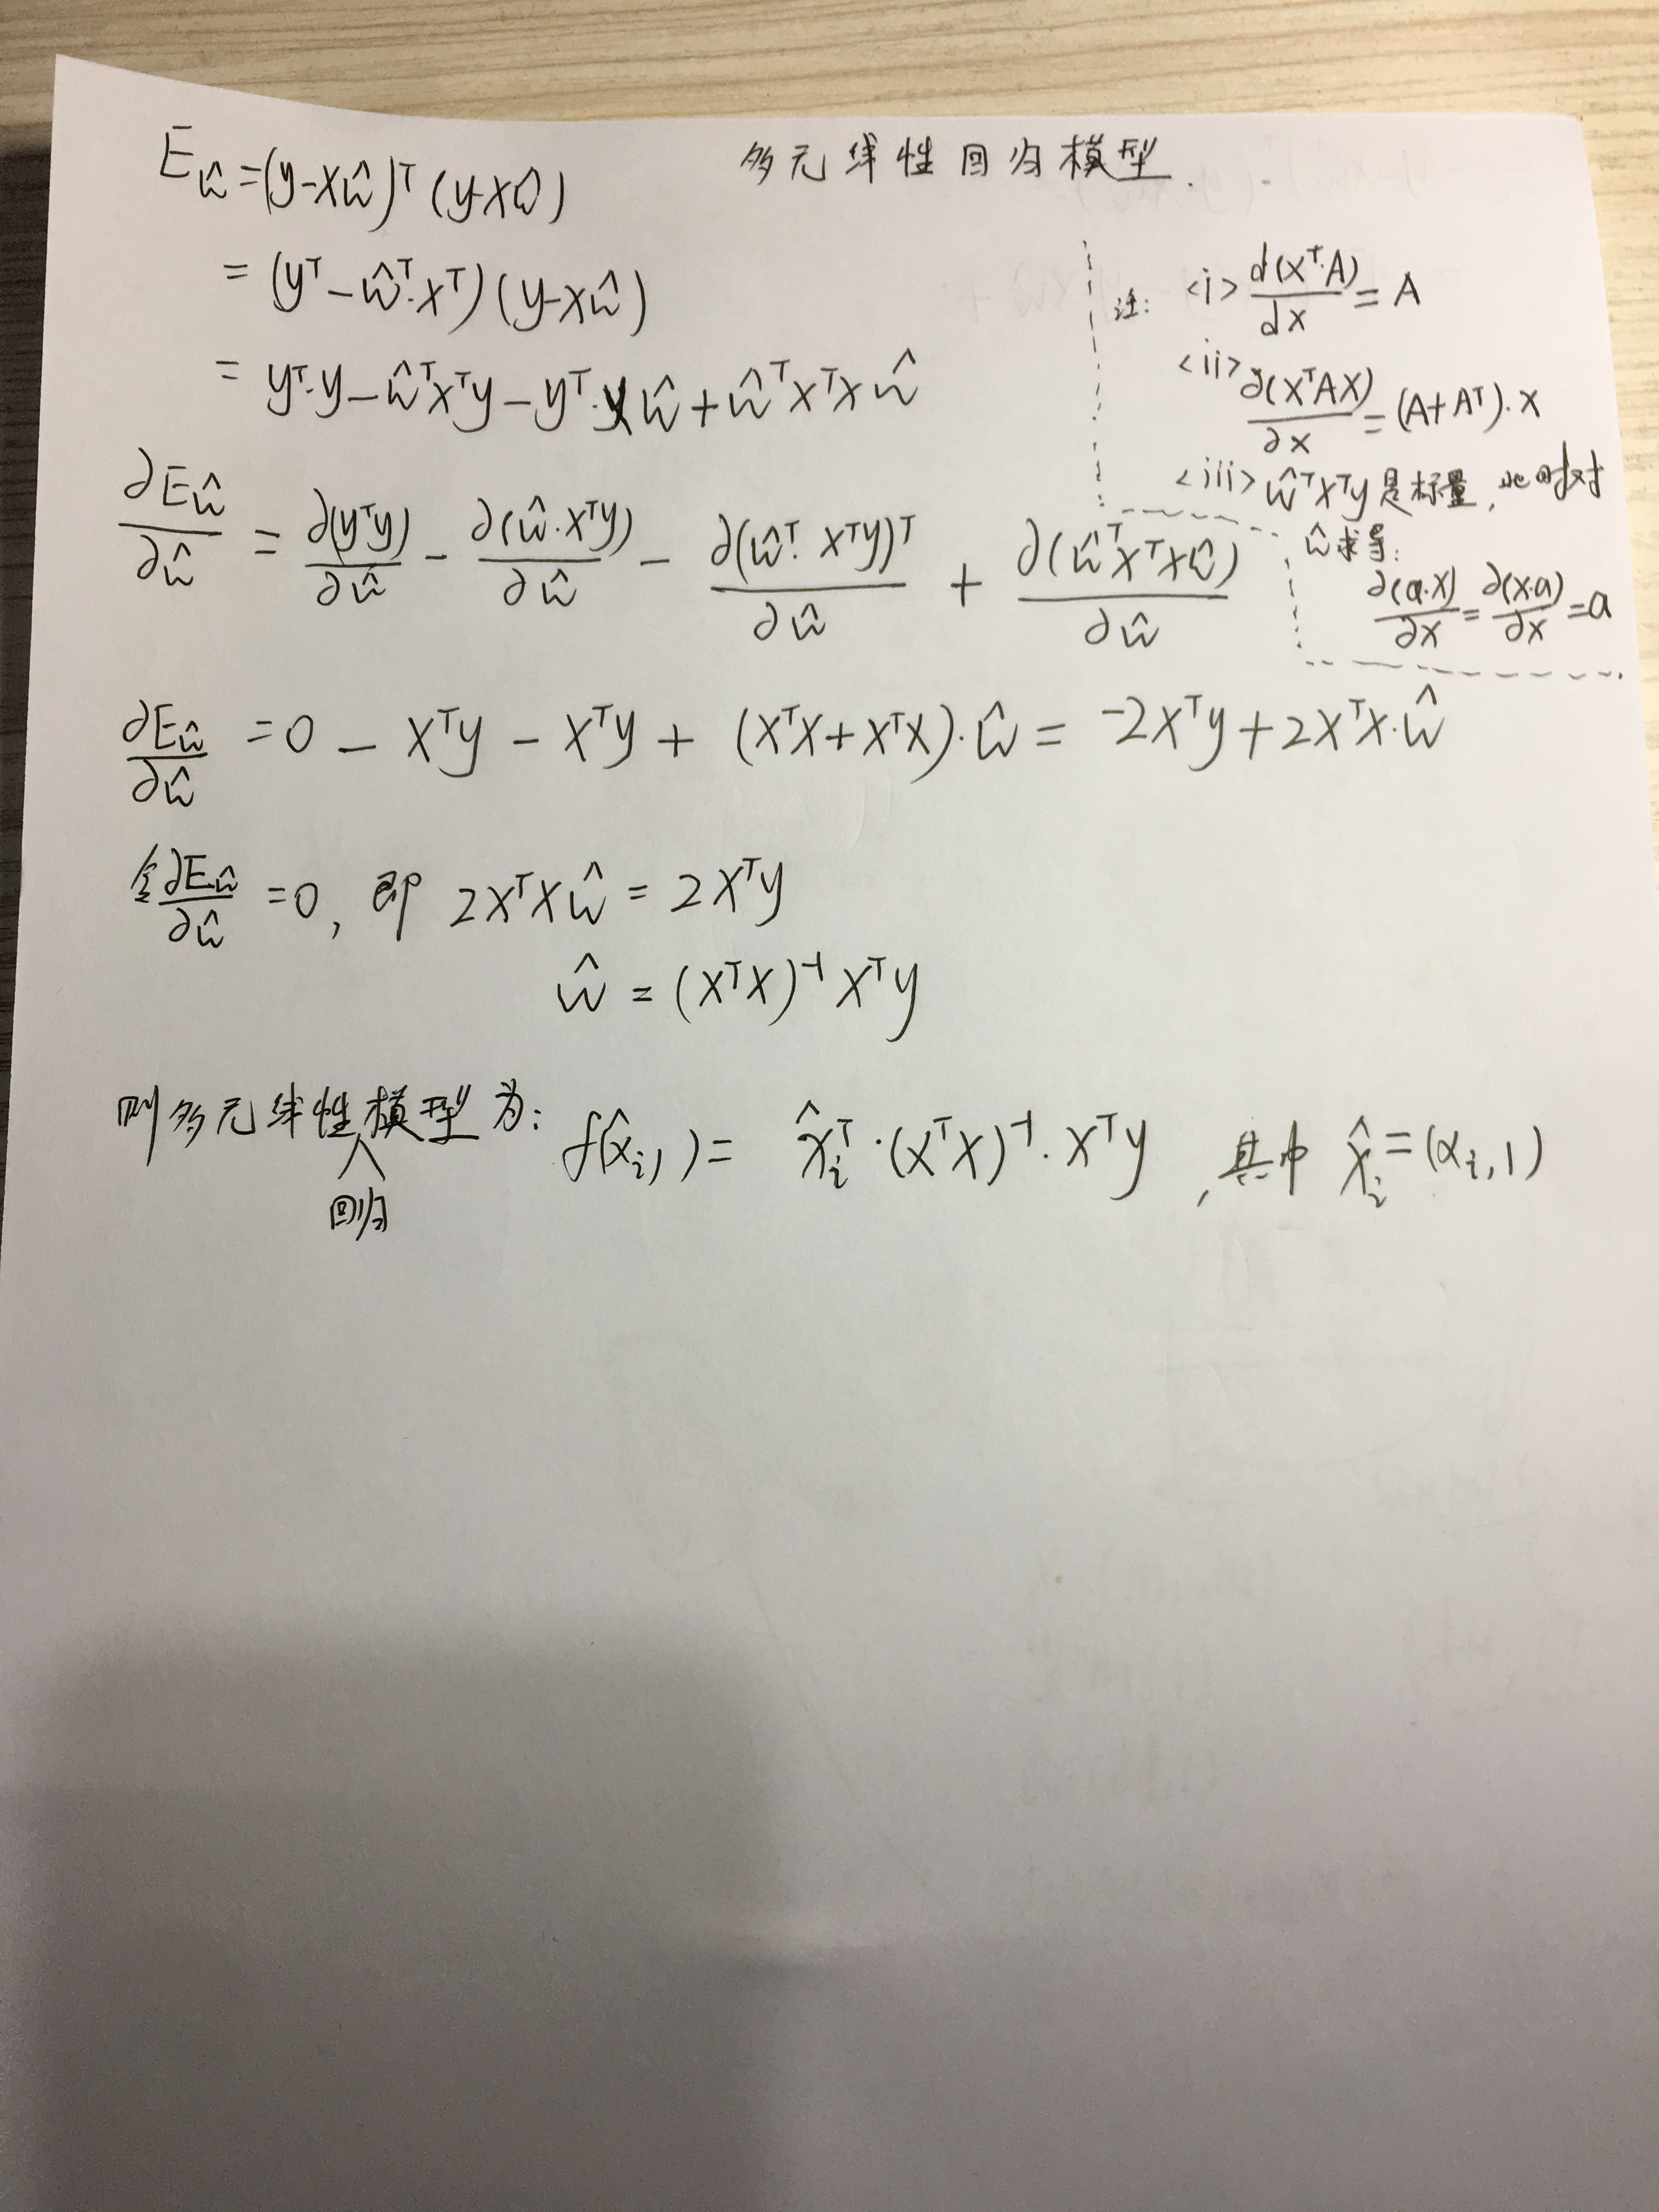 多元线性回归模型.
E_ŵ=(y-Xŵ)ᵀ(y-Xŵ)
= (yᵀ-ŵᵀ·Xᵀ)(y-Xŵ)
= yᵀ·y-ŵᵀXᵀy-yᵀ·Xŵ+ŵᵀXᵀXŵ
注: <i> d(Xᵀ·A)/dX = A
<ii> ∂(XᵀAX)/∂X = (A+Aᵀ)·X
<iii> ŵᵀXᵀy是标量,此时对
ŵ求导:
∂(a·X)/∂X = ∂(X·a)/∂X = a
∂E_ŵ/∂ŵ = ∂(yᵀy)/∂ŵ - ∂(ŵ·Xᵀy)/∂ŵ - ∂(ŵᵀ·Xᵀy)ᵀ/∂ŵ + ∂(ŵᵀXᵀXŵ)/∂ŵ
∂E_ŵ/∂ŵ = 0 - Xᵀy - Xᵀy + (XᵀX+XᵀX)·ŵ = -2Xᵀy+2XᵀX·ŵ
令∂E_ŵ/∂ŵ =0, 即 2XᵀXŵ = 2Xᵀy
ŵ = (XᵀX)⁻¹Xᵀy
则多元线性回归模型为: f(x̂ᵢ,) = x̂ᵢᵀ·(XᵀX)⁻¹·Xᵀy , 其中 x̂ᵢ=(xᵢ,1)